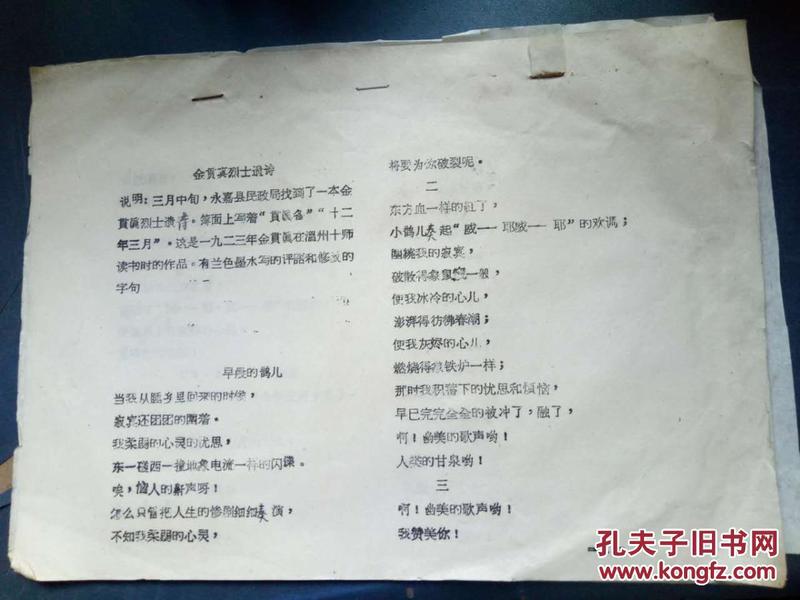 金貫真烈士遗诗
说明：三月中旬，永嘉县民政局找到了一本金
貫真烈士遗诗。簿面上写着“貫真各”“十二
年三月”。这是一九二三年金貫真在温州十师
读书时的作品。有兰色墨水写的评語和修改的
字句
早晨的鹊儿
当我从睡乡里回来的时候，
寂寞还团团的围着。
我柔弱的心灵的忧思，
东一碰西一撞地象电流一样的闪躁。
唉，恼人的鼾声呀！
怎么只管把人生的惨剧细细奏演，
不知我柔弱的心灵，
将要为你破裂呢。
二
东方血一样的红了，
小鹊儿奏起“威一一耶威一一耶”的欢调；
围绕我的寂寞，
破散得象星一般，
使我冰冷的心儿，
澎湃得彷彿春潮；
使我灰烬的心儿，
燃烧得象铁炉一样；
那时我积蓄下的忧思和烦恼，
早已完完全全的被冲了，融了，
啊！幽美的歌声哟！
人类的甘泉哟！
三
啊！幽美的歌声哟！
我赞美你！
孔夫子旧书网
www.kongfz.com